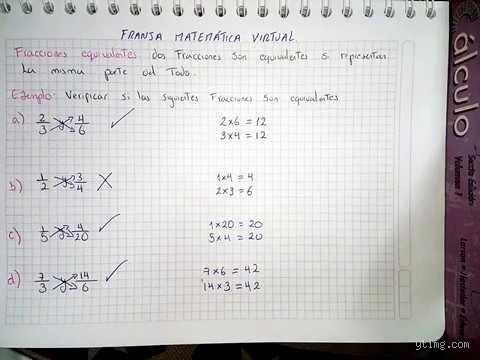 FRANJA MATEMÁTICA VIRTUAL
Fracciones equivalentes dos Fracciones son equivalentes si representan
la misma parte del Todo.
Ejemplo: Verificar si las siguientes Fracciones son equivalentes
a) 2/3 y 4/6 ✓ 2×6 = 12
3×4 = 12
b) 1/2 y 3/4 X 1×4 = 4
2×3 = 6
c) 1/5 y 4/20 ✓ 1×20 = 20
5×4 = 20
d) 7/3 y 14/6 ✓ 7×6 = 42
14×3 = 42
álculo
Sexta Edición
Volumen 1
Larson
ytimg.com